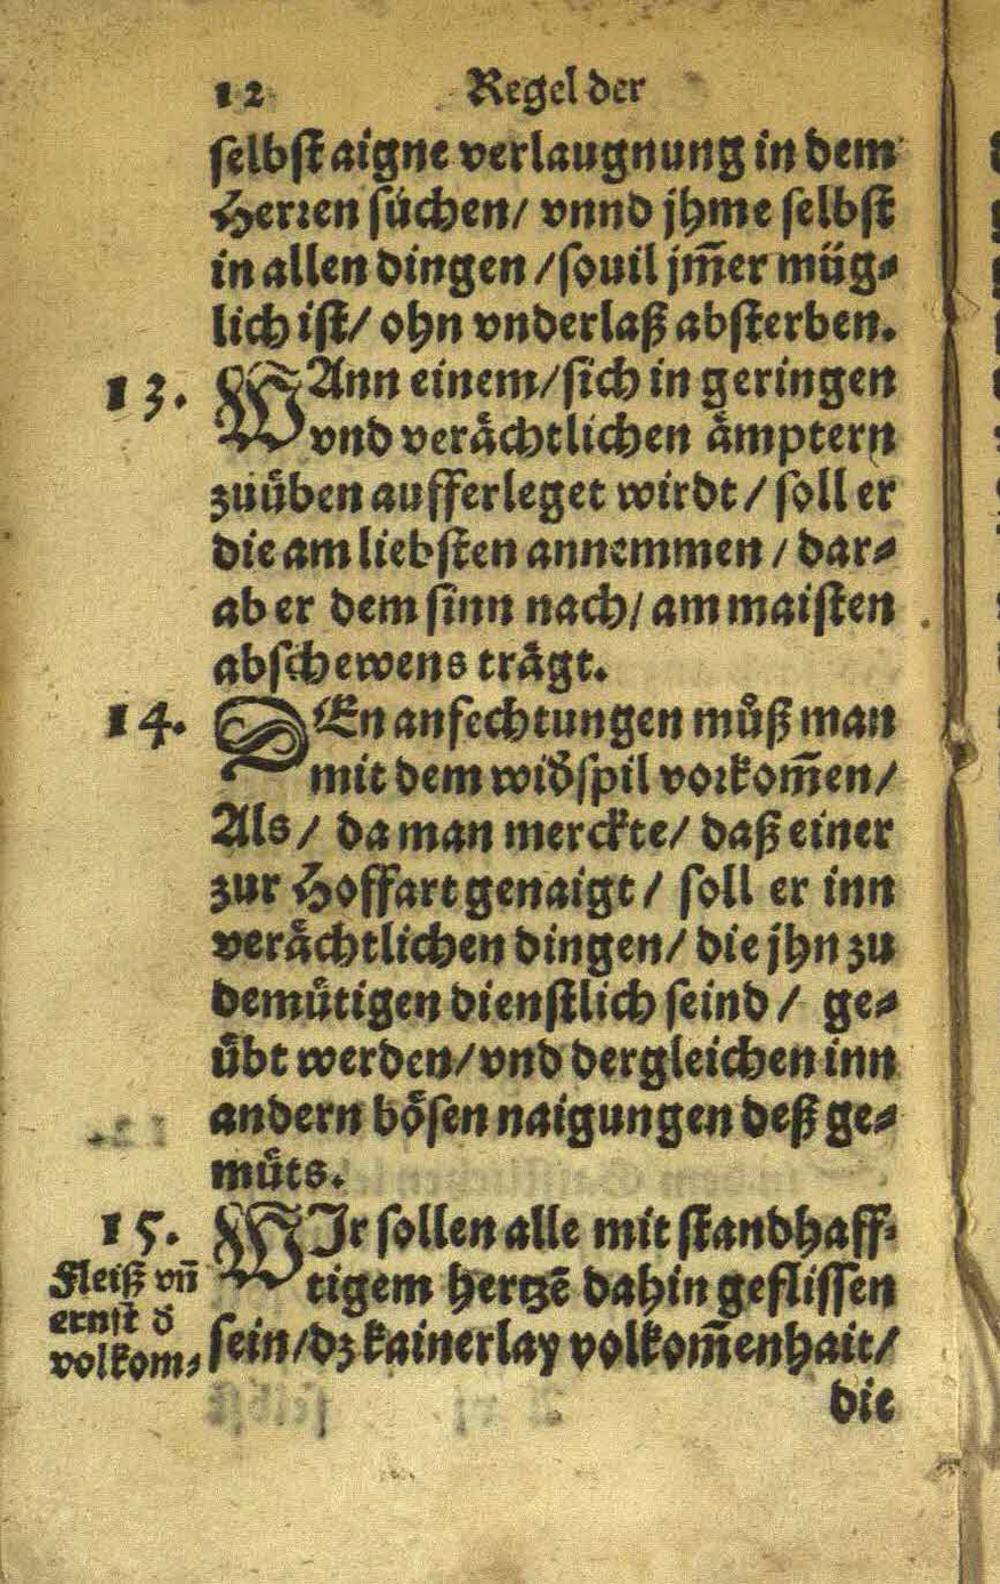 12 Regel der
selbst aigne verlaugnung in dem
Herren suͤchen/ vnnd jhme selbst
in allen dingen /souil jm̃er müg⸗
lich ist/ ohn vnderlaß absterben.
13. WAnn einem/sich in geringen
vnd veraͤchtlichen aͤmptern
zuuͤben aufferleget wirdt / soll er
die am liebsten annemmen / dar⸗
ab er dem sinn nach/ am maisten
abschewens traͤgt.
14. DEn anfechtungen muͦß man
mit dem wid̕spil vorkom̃en/
Als/ da man merckte/ daß einer
zur Hoffart genaigt/ soll er inn
veraͤchtlichen dingen/ die jhn zu
demuͤtigen dienstlich seind / ge⸗
uͤbt werden/vnd dergleichen inn
andern boͤsen naigungen deß ge⸗
muͤts.
15. WIr sollen alle mit standhaff⸗
tigem hertzē dahin geflissen
sein/dz kainerlay volkom̃enhait/
Fleiß vñ
ernst d̕
volkom⸗
die